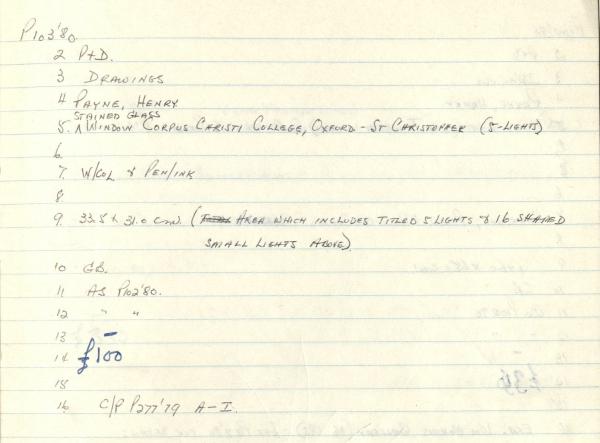 P103'80.
2 P+D.
3 DRAWINGS
4 PAYNE, HENRY
STAINED GLASS
5. ^ WINDOW CORPUS CHRISTI COLLEGE, OXFORD - ST CHRISTOPHER (5-LIGHTS)
6
7. W/COL & PEN/INK
8
9. 33.5 x 31.0 cm. (AREA WHICH INCLUDES TITLED 5 LIGHTS & 16 SHAPED
SMALL LIGHTS ABOVE)
10 GB.
11 AS P102'80.
12 " "
13 -
14 £100
15
16. C/P P277'79 A-I.